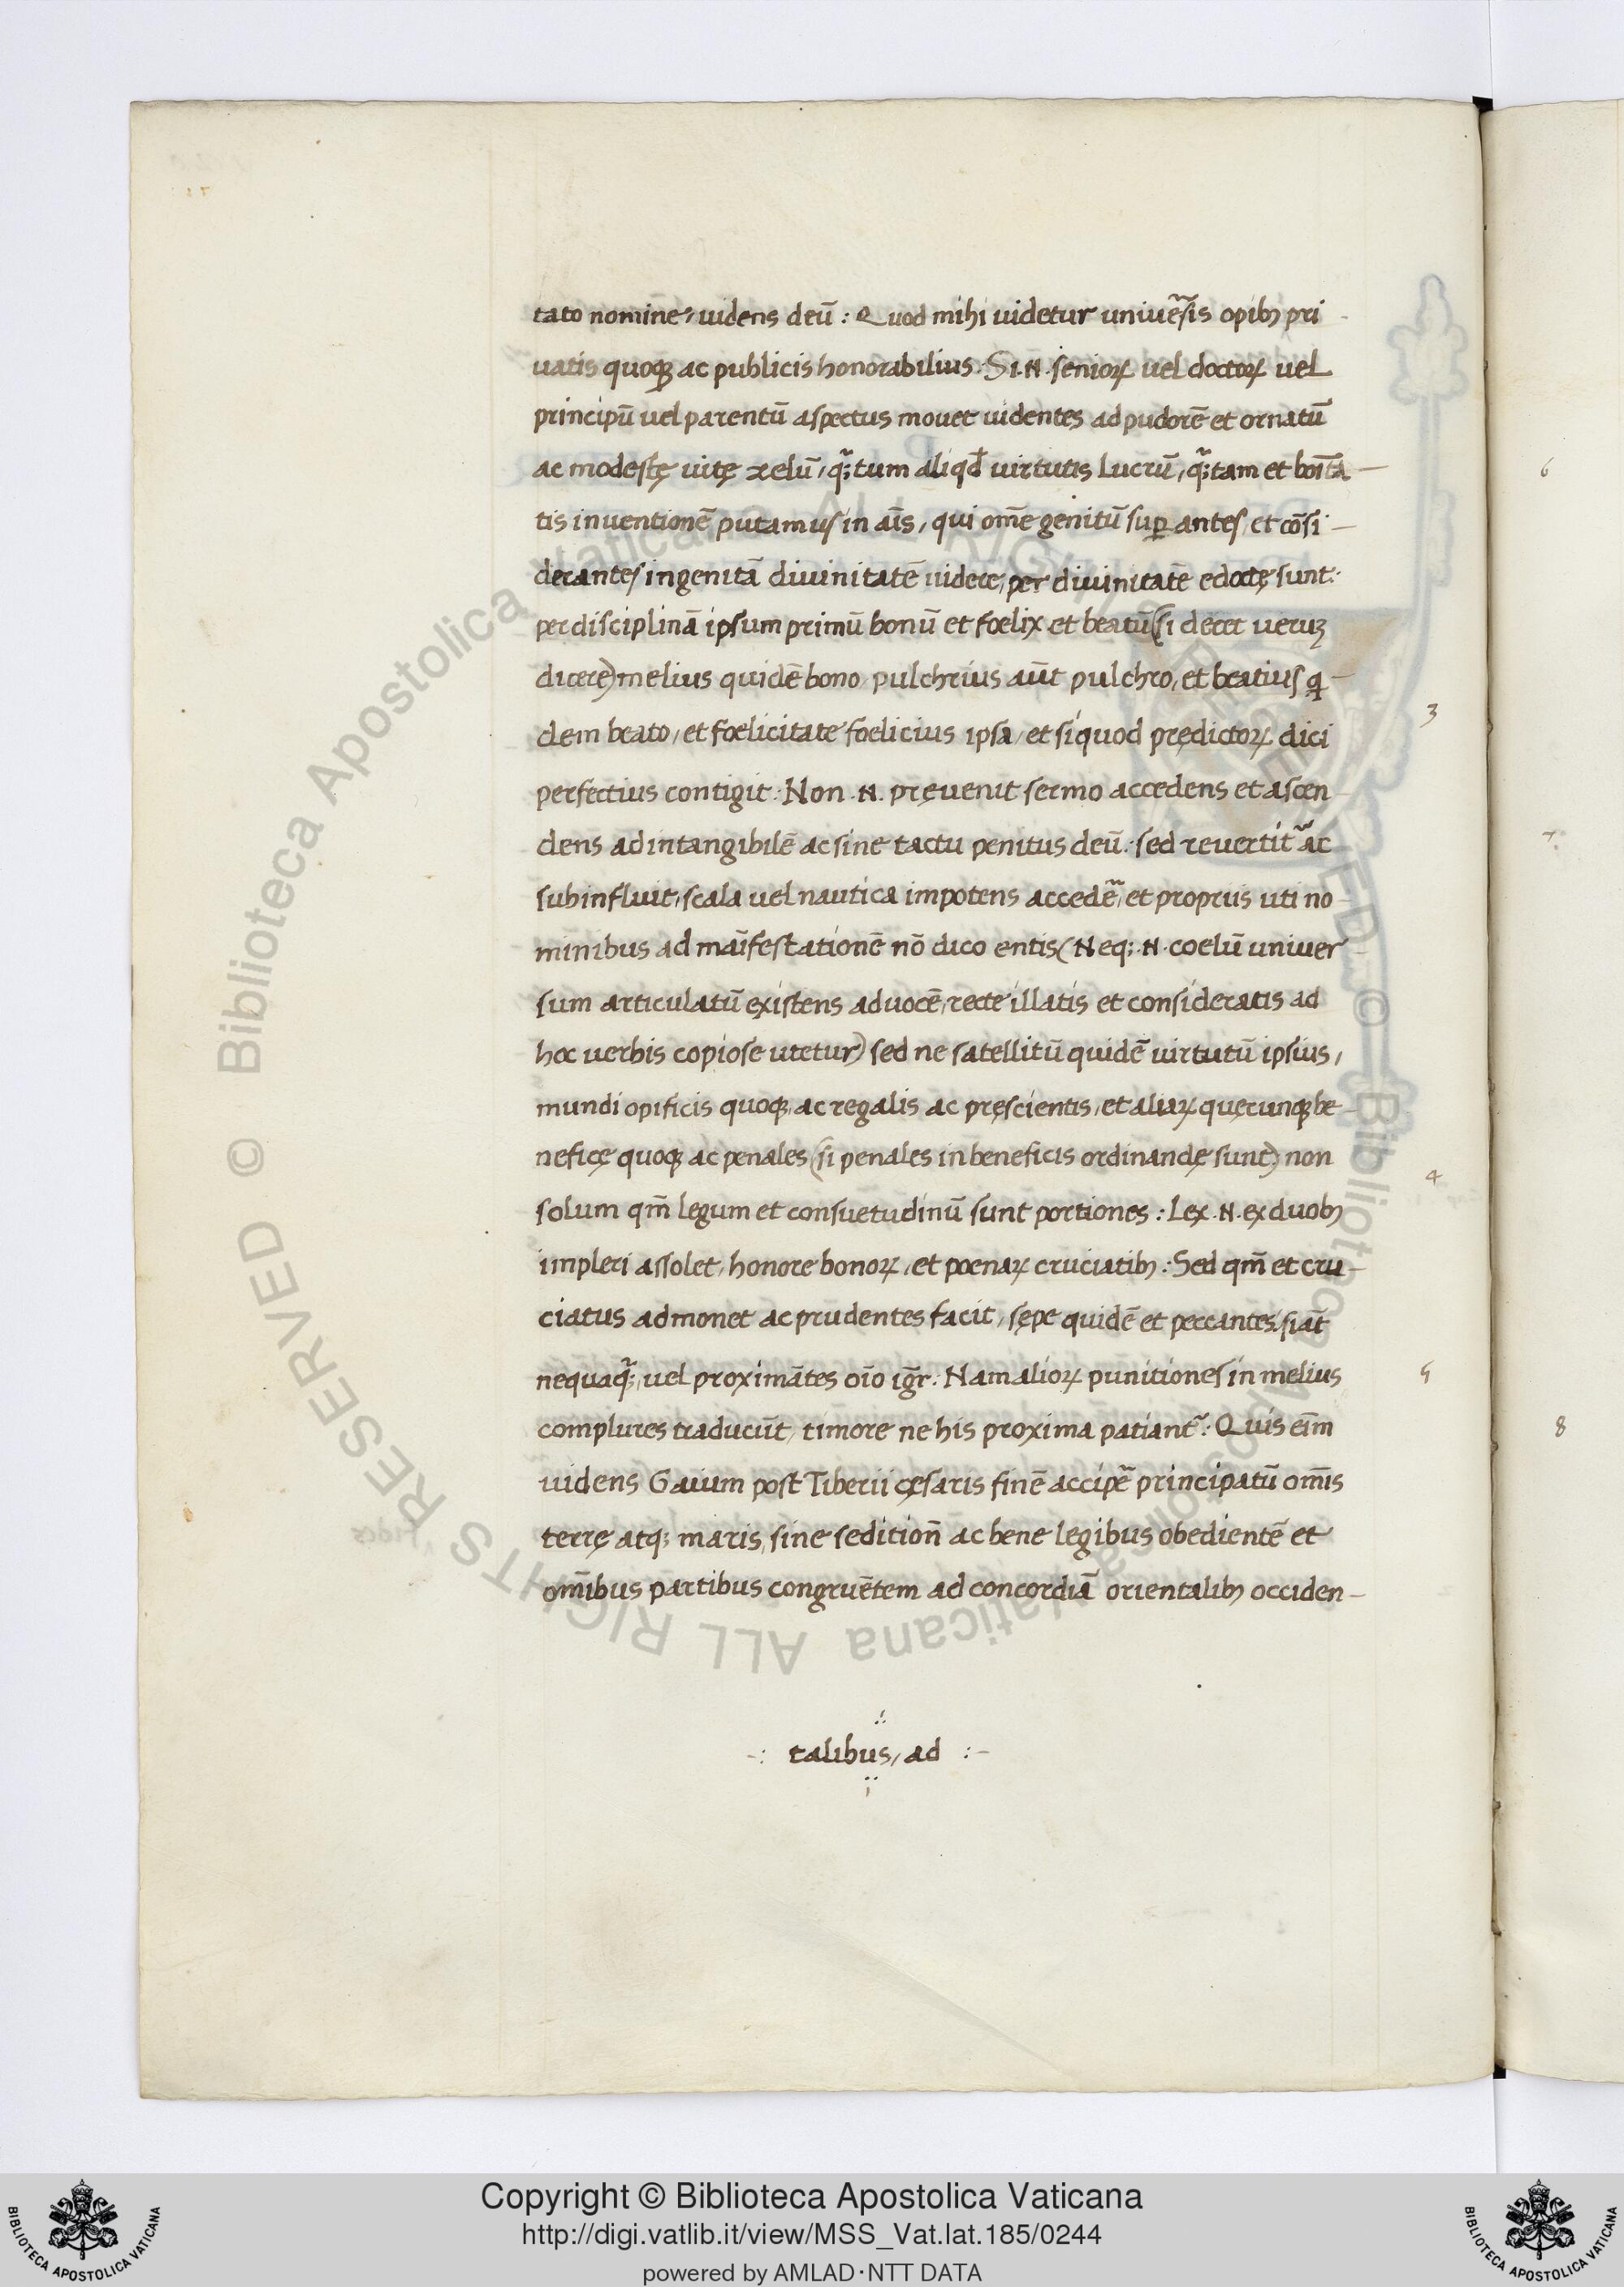 tato nomine, uidens deū: Quod mihi uidetur uniuẽsis opibꝫ pri
uatis quoqꝫ ac publicis honorabilius. Si.N. senioꝝ uel doctoꝝ uel
principū uel parentū aspectus mouet uidentes ad pudorē et ornatū
ac modestę uitę zelū, qᷓꝫtum aliqđ virtutis Lucrū, qᷓꝫtam et bonīta
tis inuentionē putamus in aīs, qui omē genitū suꝑantes, et cōsi
derantes ingenitā diuinitatē uidere, per diuinitatē edoctę sunt:
per disciplinā ipsum primū bonū et foelix et beatū (si decet ueruꝫ
dicere) melius quidē bono, pulchrius aūt pulchro, et beatius qi
dem beato, et foelicitate foelicius ipsa, et siquod prędictoꝝ dici
perfectius contigit: Non .N. pręuenit sermo accedens et ascen
dens ad intangibilē ac sine tactu penitus deū: sed reuertit᷑ ac
subinfluit, scala uel nautica impotens accedẽ, et propriis uti no
minibus ad maīfestationē nō dico entis (Neqꝫ .N. coelū uniuer
sum articulatū existens ad uocē, recte illatis et consideratis ad
hoc uerbis copiose utetur) sed ne satellitū quidē uirtutū ipsius,
mundi opificis quoqꝫ, ac regalis ac pręscientis, et aliaꝝ quęcunqꝫ be
neficę quoqꝫ ac penales (si penales in beneficis ordinandę sunt) non
solum qm̄ legum et consuetudinū sunt portiones: Lex .N. ex duobꝫ
impleri assolet, honore bonoꝝ, et poenaꝝ cruciatibꝫ: Sed qm̄ et cru
ciatus admonet ac prudentes facit, sępe quidē et peccantes, siāt
nequaqᷓꝫ, uel proximātes oīo igr̄: Nam alioꝝ punitiones in melius
complures traducūt, timore ne his proxima patiant᷑: Quis eīm
uidens Gaium post Tiberii cęsaris finē accipẽ principatū om̄is
terrę atqꝫ maris, sine sedition̄ ac bene legibus obedientē et
om̄ibus partibus congruētem ad concordiā orientalibꝫ occiden
talibus, ad
3
4
5
6
7
8
© Biblioteca Apostolica Vaticana ALL RIGHTS RESERVED
Copyright © Biblioteca Apostolica Vaticana
http://digi.vatlib.it/view/MSS_Vat.lat.185/0244
powered by AMLAD·NTT DATA
BIBLIOTECA APOSTOLICA VATICANA
BIBLIOTECA APOSTOLICA VATICANA